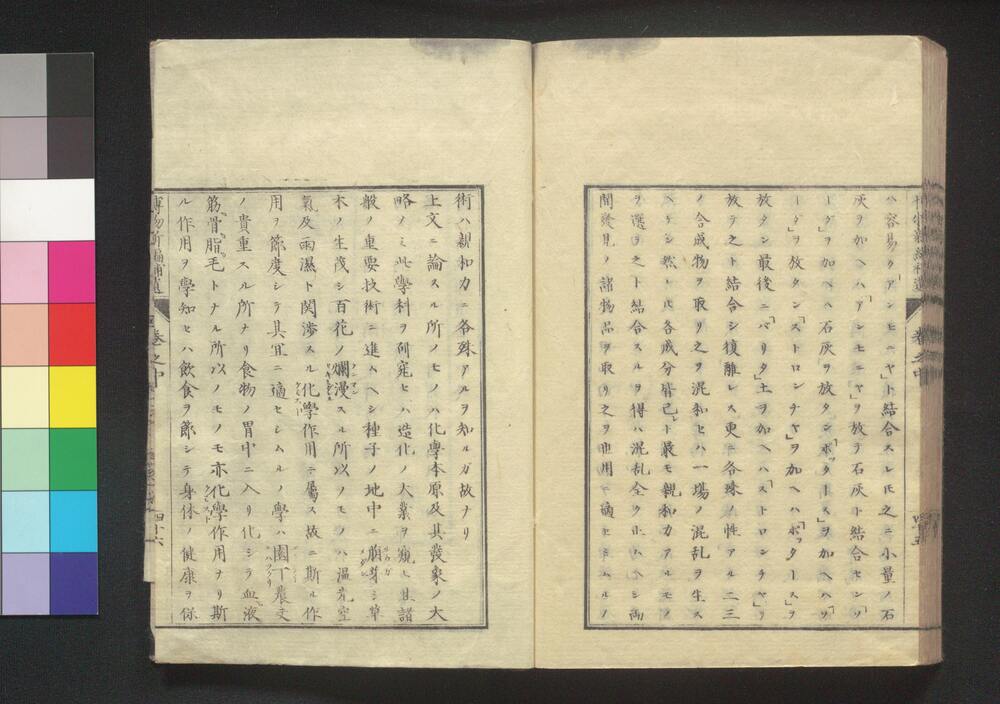 ハ容易ク「アンモニヤ」ト結合スレ𪜈之ニ小量ノ石
灰ヲ加ヘハ「アンモニヤ」ヲ放テ石灰ト結合セン「ソ
ーダ」ヲ加ヘハ石灰ヲ放タン「ポッタース」ヲ加ヘハ「ソ
ーダ」ヲ放タン「ストロンチヤ」ヲ加ヘハ「ポッタース」ヲ
放タン最後ニ「バリタ」土ヲ加ヘハ「ストロンチヤ」ヲ
放テ之ト結合シ復離レス更ニ各殊ノ性アル二三
ノ合成物ヲ取リ之ヲ混和セハ一場ノ混乱ヲ生ス
ヘケン然レ𪜈各成分皆已レト最モ親和力アルモノ
ヲ選ヲ之ト結合スルヲ得ハ混乱全ク止ムヘシ
間発見ノ諸物品ヲ取リ之ヲ
巻之中
四十五
術ハ親和力ニ各殊アルヲ知ルガ故ナリ
上文ニ論スル所ノモノハ化學本原及其發象ノ大
略ノミ此學科ヲ研究セハ造化ノ大業ヲ窺ヒ其諸
般ノ重要技術ニ進ムヘシ種子ノ地中ニ萠芽シ草
木ノ生茂シ百花ノ爛漫スル所以ノモノハ温光空
氣及雨濕ト関渉スル化學作用ニ屬ス故ニ斯ル作
用ヲ節度シテ其宜ニ適セシムルノ學ハ園丁農夫
ノ貴重スル所ナリ食物ノ胃中ニ入リ化シテ血液
筋骨脂毛トナル所以ノモノモ亦化學作用ナリ斯
ル作用ヲ學知セハ飲食ヲ節シテ身体ノ健康ヲ保
博物新編補遺
巻之中
四十六